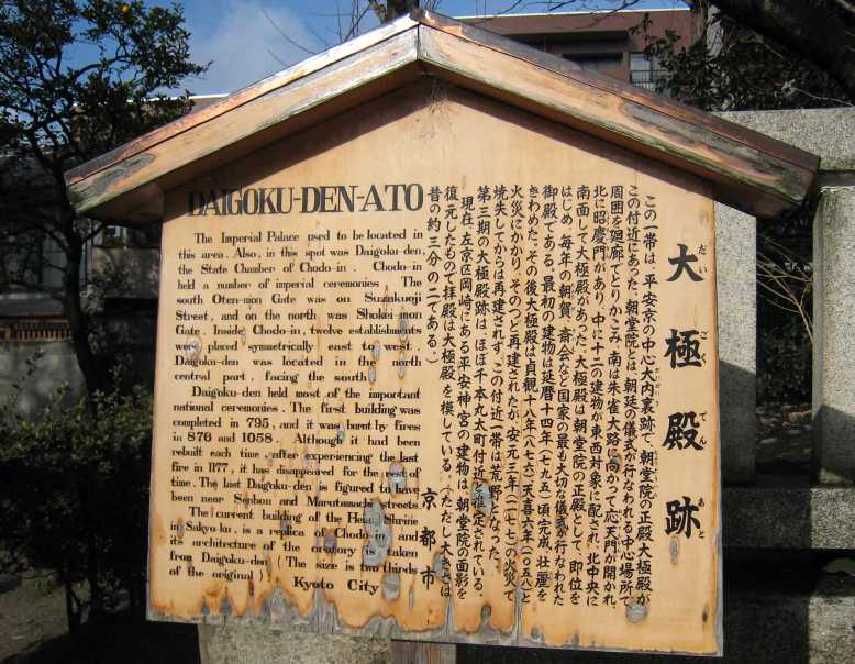 DAIGOKU-DEN-ATO
The Imperial Palace used to be located in
this area. Also, in this spot was Daigoku-den,
the State Chamber of Chodo-in. Chodo-in
held a number of imperial ceremonies. The
south Oten-mon Gate was on Suzakuoji
Street, and on the north was Shokei-mon
Gate. Inside Chodo-in, twelve establishments
were placed symmetrically east to west.
Daigoku-den was located in the north
central part, facing the south.
Daigoku-den held most of the important
national ceremonies. The first building was
completed in 795, and it was burnt by fires
in 876 and 1058. Although it had been
rebuilt each time, after experiencing the last
fire in 1177, it has disappeared for the rest of
time. The last Daigoku-den is figured to have
been near Senbon and Marutamachi streets.
The current building of the Heian Shrine
in Sakyo-ku, is a replica of Chodo-in and
its architecture of the oratory is taken
from Daigoku-den. (The size is two thirds
of the original)
Kyoto City
大極殿跡
だいごくでんあと
この一帯は、平安京の中心大内裏跡で、朝堂院の正殿大極殿が
この付近にあった。朝堂院とは、朝廷の儀式が行なわれる中心場所で
周囲を廻廊でとりかこみ、南は朱雀大路に向かって応天門が開かれ、
北に昭慶門があり、中に十二の建物が東西対象に配され、北中央に
南面して大極殿があった。大極殿は朝堂院の正殿として、即位を
はじめ、毎年の朝賀、斎会など国家の最も大切な儀式が行なわれた
御殿である。最初の建物は延暦十四年(七九五)頃完成、壮麗を
きわめた。その後大極殿は貞観十八年(八七六)天喜六年(一〇五八)と
火災にかかり、そのつど再建されたが、安元三年(一一七七)の火災で
焼失してからは再建されず、この付近一帯は荒野となった。
第三期の大極殿跡は、ほぼ千本丸太町付近と推定されている。
現在、左京区岡崎にある平安神宮の建物は、朝堂院の面影を
復元したもので拝殿は大極殿を模している。(ただし大きさは
昔の約三分の二である。)
京都市